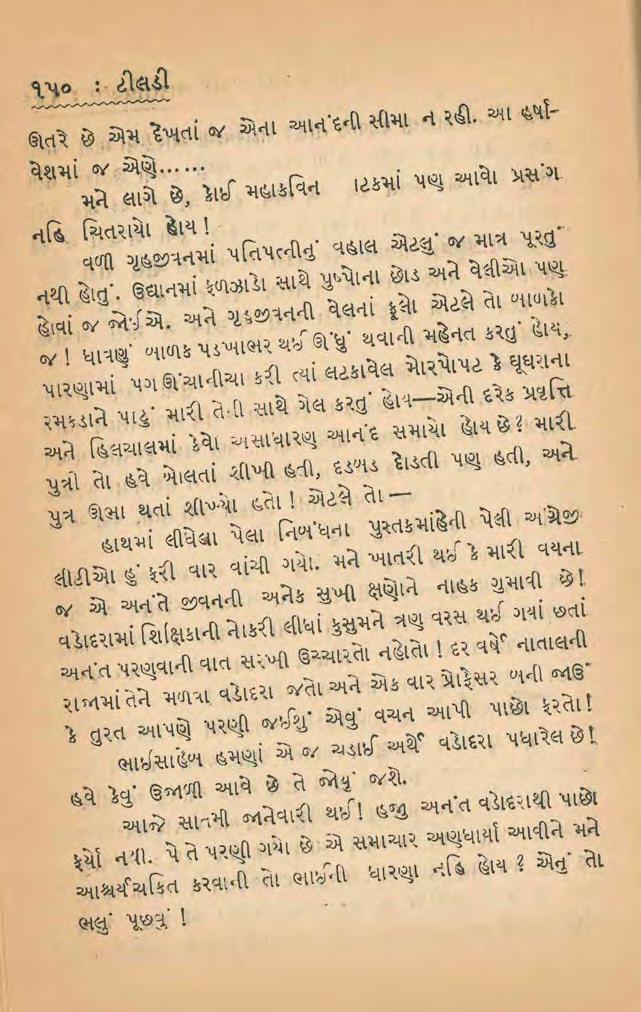 ૧૫૦ : ટીલડી
ઊતરે છે એમ દેખતાં જ એના આનંદની સીમા ન રહી. આ હર્ષા-
વેશમાં જ એણે......
મને લાગે છે, કોઈ મહાકવિન ાટકમાં પણ આવો પ્રસંગ
નહિ ચિતરાયો હોય !
વળી ગૃહજીવનમાં પતિપત્નીનું વહાલ એટલું જ માત્ર પૂરતું
નથી હોતું. ઉદ્યાનમાં ફળઝાડો સાથે પુષ્પોના છોડ અને વેલીઓ પણ
હોવાં જ જોઈએ. અને ગૃહજીવનની વેલનાં ફૂલો એટલે તો બાળકો
જ ! ધાવણું બાળક પડખાભર થઈ ઊંધું થવાની મહેનત કરતું હોય,
પારણામાં પગ ઊંચાનીચા કરી ત્યાં લટકાવેલ મોરપોપટ કે ઘૂઘરાના
રમકડાને પાટું મારી તેની સાથે ગેલ કરતું હોય—એની દરેક પ્રવૃત્તિ
અને હિલચાલમાં કેવો અસાધારણ આનંદ સમાયો હોય છે? મારી
પુત્રી તો હવે બોલતાં શીખી હતી, દડબડ દોડતી પણ હતી, અને
પુત્ર ઊભા થતાં શીખ્યો હતો ! એટલે તો —
હાથમાં લીધેલા પેલા નિબંધના પુસ્તકમાંહેની પેલી અંગ્રેજી
લીટીઓ હું ફરી વાર વાંચી ગયો. મને ખાતરી થઈ કે મારી વયના
જ એ અનંતે જીવનની અનેક સુખી ક્ષણોને નાહક ગુમાવી છે!
વડોદરામાં શિક્ષિકાની નોકરી લીધાં કુસુમને ત્રણ વરસ થઈ ગયાં છતાં
અનંત પરણવાની વાત સરખી ઉચ્ચારતો નહોતો ! દર વર્ષે નાતાલની
રાજામાં તેને મળવા વડોદરા જતો અને એક વાર પ્રોફેસર બની જાઉં
કે તુરત આપણે પરણી જઈશું એવું વચન આપી પાછો ફરતો!
ભાઈસાહેબ હમણાં એ જ ચડાઈ અર્થે વડોદરા પધારેલ છે!
હવે કેવું ઉજાળી આવે છે તે જોયું જશે.
આજે સાતમી જાનેવારી થઈ! હજી અનંત વડોદરાથી પાછો
ફર્યો નથી. પોતે પરણી ગયો છે એ સમાચાર અણધાર્યા આવીને મને
આશ્ચર્યચકિત કરવાની તો ભાઈની ધારણા નહિ હોય ? એનું તો
ભલું પૂછવું !